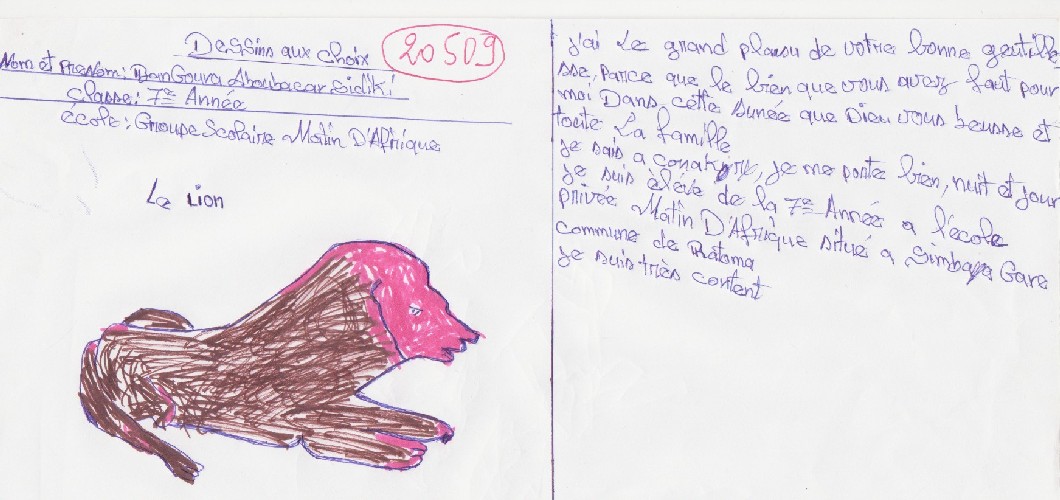 Dessins aux choix
20509
Nom et Prenom: DanGoura Aboubacar Sidiki
Classe: 7e Année
école: Groupe Scolaire Matin D'Afrique
Le Lion
j'ai Le grand plansu de votre bonne gentille
sse, parce que le bien que vous avez fait pour
moi Dans cette année que Dieu vous beusse et
toute La famille
je sais a conakry, je me porte bien, nuit et jour
je suis élève de la 7e Année a l'école
privée Matin D'Afrique situé a Simbaya Gare
commune de Ratoma
je suis très content